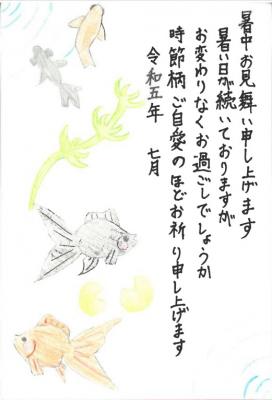 暑中お見舞い申し上げます
暑い日が続いておりますが
お変わりなくお過ごしでしょうか
時節柄ご自愛のほどお祈り申し上げます
令和五年 七月